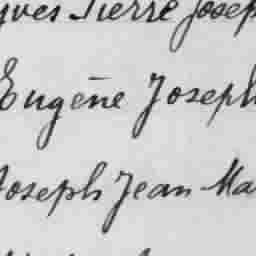 Yves Pierre Joseph
Eugène Joseph
Joseph Jean Ma